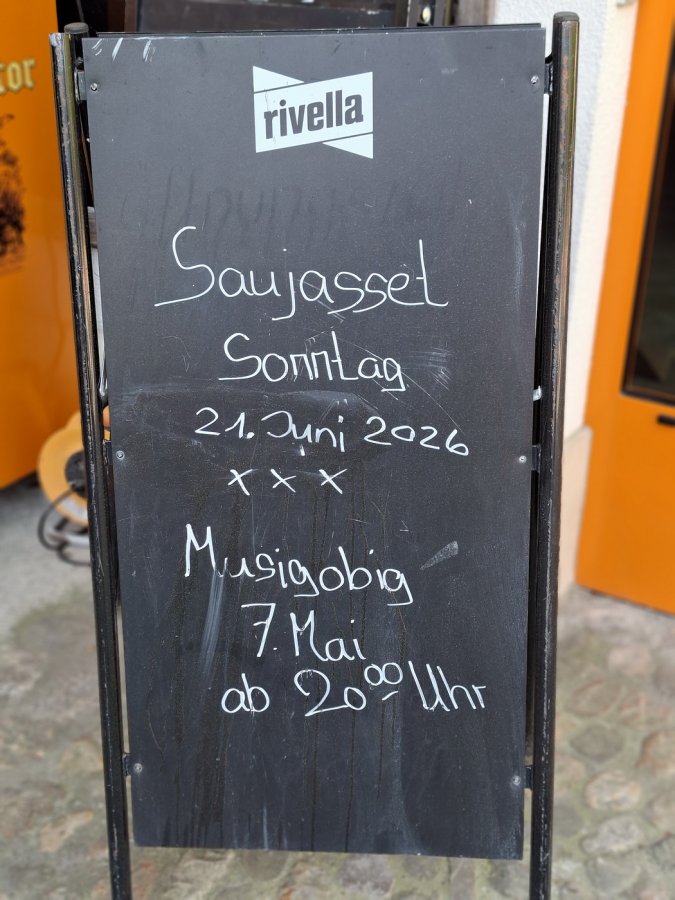 ror
rivella
Saujasset
Sonntag
21. Juni 2026
x x x
Musigobig
7. Mai
ab 20⁰⁰ Uhr